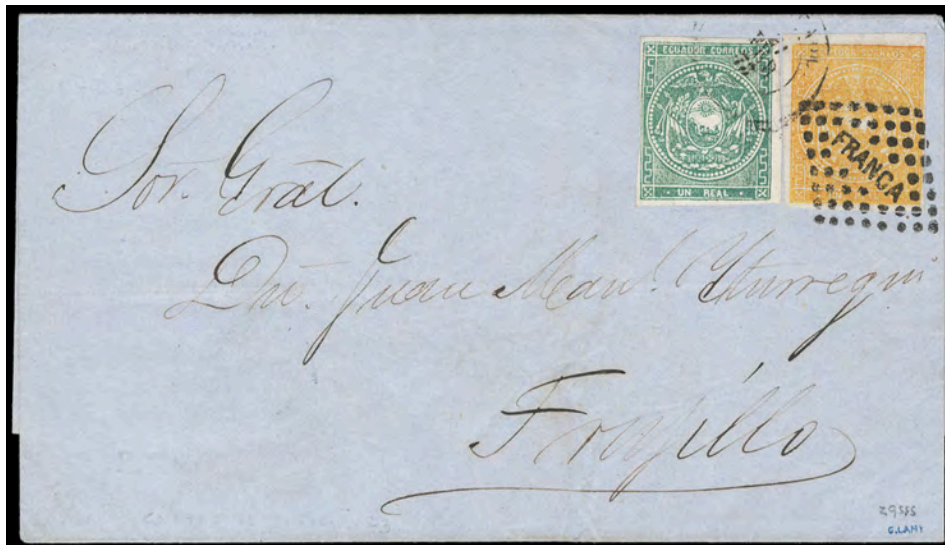 ECUADOR CORREOS
UN REAL
ECUADOR CORREOS
FRANCA
Sor. Gral.
Dn. Juan Manl. Yturregui
Trujillo
29585
G.LAMY